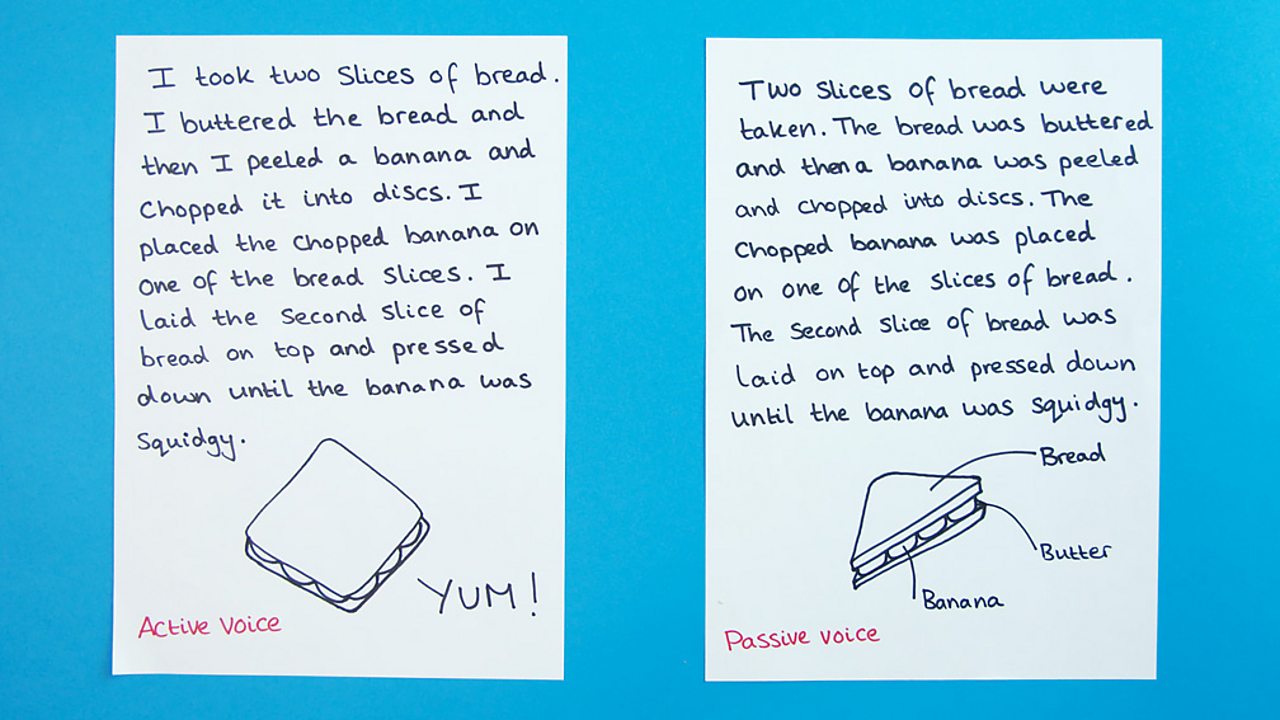 I took two slices of bread.
I buttered the bread and
then I peeled a banana and
chopped it into discs. I
placed the chopped banana on
one of the bread slices. I
laid the second slice of
bread on top and pressed
down until the banana was
squidgy.
YUM!
Active Voice
Two slices of bread were
taken. The bread was buttered
and then a banana was peeled
and chopped into discs. The
chopped banana was placed
on one of the slices of bread.
The second slice of bread was
laid on top and pressed down
until the banana was squidgy.
Bread
Butter
Banana
Passive voice